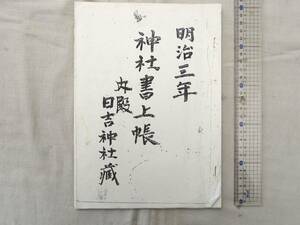 明治三年
神社書上帳
内殿
日吉神社藏